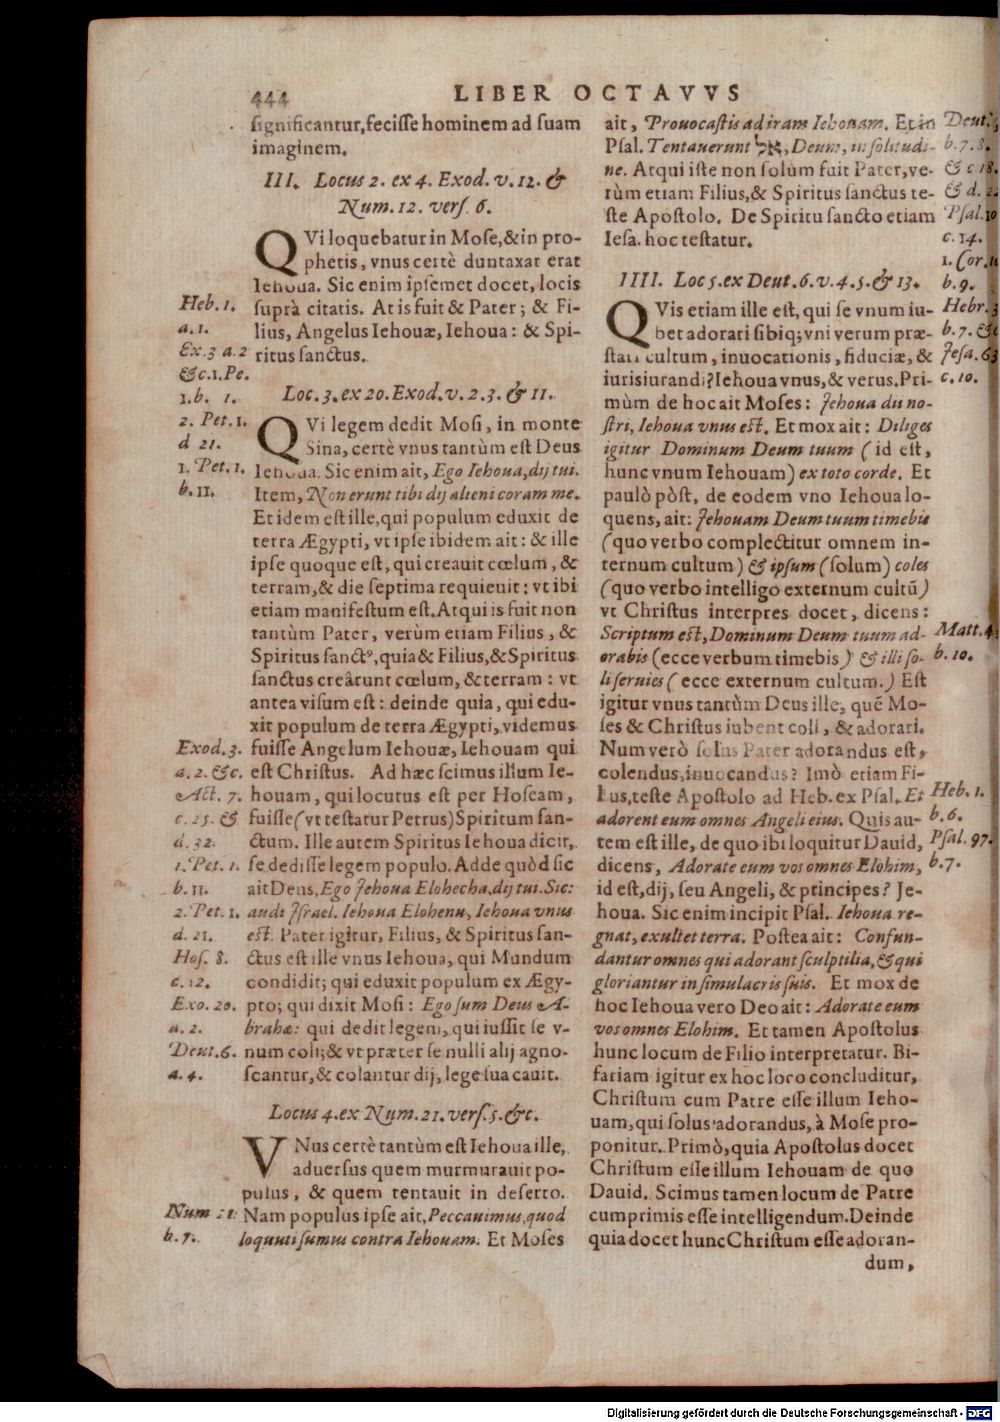 444
LIBER OCTAVVS
significantur, fecisse hominem ad suam
imaginem.
III. Locus 2. ex 4. Exod. v. 12. &
Num. 12. vers. 6.
QVi loquebatur in Mose, & in pro-
phetis, vnus certè duntaxat erat
Iehoua. Sic enim ipsemet docet, locis
suprà citatis. At is fuit & Pater; & Fi-
lius, Angelus Iehouæ, Iehoua: & Spi-
ritus sanctus.
Loc. 3. ex 20. Exod. v. 2. 3. & 11.
QVi legem dedit Mosi, in monte
Sina, certè vnus tantùm est Deus
Iehoua. Sic enim ait, Ego Iehoua, dij tui.
Item, Non erunt tibi dij alieni coram me.
Et idem est ille, qui populum eduxit de
terra Ægypti, vt ipse ibidem ait: & ille
ipse quoque est, qui creauit cœlum, &
terram, & die septima requieuit: vt ibi
etiam manifestum est. Atqui is fuit non
tantùm Pater, verùm etiam Filius, &
Spiritus sanctꝰ, quia & Filius, & Spiritus
sanctus creârunt cœlum, & terram: vt
antea visum est: deinde quia, qui edu-
xit populum de terra Ægypti, videmus
fuisse Angelum Iehouæ, Iehouam qui
est Christus. Ad hæc scimus illum Ie-
houam, qui locutus est per Hoseam,
fuisse (vt testatur Petrus) Spiritum san-
ctum. Ille autem Spiritus Iehoua dicit,
se dedisse legem populo. Adde quòd sic
ait Deus, Ego Jehoua Elohecha, dij tui. Sic:
audi Jsrael. Iehoua Elohenu, Iehoua vnus
est. Pater igitur, Filius, & Spiritus san-
ctus est ille vnus Iehoua, qui Mundum
condidit; qui eduxit populum ex Ægy-
pto; qui dixit Mosi: Ego sum Deus A-
brahæ: qui dedit legem, qui iussit se v-
num coli; & vt præter se nulli alij agno-
scantur, & colantur dij, lege sua cauit.
Locus 4. ex Num. 21. vers. 5. &c.
VNus certè tantùm est Iehoua ille,
aduersus quem murmurauit po-
pulus, & quem tentauit in deserto.
Nam populus ipse ait, Peccauimus, quod
loquuti sumus contra Iehouam. Et Moses
Heb. 1.
a. 1.
Ex. 3 a. 2
& c. 1. Pe.
1. b. 1.
2. Pet. 1.
d 21.
1. Pet. 1.
b. 11.
Exod. 3.
a. 2. &c.
Act. 7.
c. 25. &
d. 32.
1. Pet. 1.
b. 11.
2. Pet. 1.
d. 21.
Hos. 8.
c. 12.
Exo. 20.
a. 2.
Deut. 6.
a. 4.
Num 21:
b. 7.
ait, Prouocastis ad iram Iehouam. Et in
Psal. Tentauerunt אל, Deum, in solitudi-
ne. Atqui iste non solùm fuit Pater, ve-
rùm etiam Filius, & Spiritus sanctus te-
ste Apostolo. De Spiritu sancto etiam
Iesa. hoc testatur.
IIII. Loc 5. ex Deut. 6. v. 4. 5. & 13.
QVis etiam ille est, qui se vnum iu-
bet adorari sibiq; vni verum præ-
stari cultum, inuocationis, fiduciæ, &
iurisiurandi? Iehoua vnus, & verus. Pri-
mùm de hoc ait Moses: Jehoua dii no-
stri, Iehoua vnus est. Et mox ait: Diliges
igitur Dominum Deum tuum (id est,
hunc vnum Iehouam) ex toto corde. Et
paulò pòst, de eodem vno Iehoua lo-
quens, ait: Jehouam Deum tuum timebis
(quo verbo complectitur omnem in-
ternum cultum) & ipsum (solum) coles
(quo verbo intelligo externum cultū)
vt Christus interpres docet, dicens:
Scriptum est, Dominum Deum tuum ad-
orabis (ecce verbum timebis) & illi so-
li seruies (ecce externum cultum.) Est
igitur vnus tantùm Deus ille, quē Mo-
ses & Christus iubent coli, & adorari.
Num verò solus Pater adorandus est,
colendus, inuocandus? Imò etiam Fi-
lius, teste Apostolo ad Heb. ex Psal. Et
adorent eum omnes Angeli eius. Quis au-
tem est ille, de quo ibi loquitur Dauid,
dicens, Adorate eum vos omnes Elohim,
id est, dij, seu Angeli, & principes? Je-
houa. Sic enim incipit Psal. Iehoua re-
gnat, exultet terra. Postea ait: Confun-
dantur omnes qui adorant sculptilia, & qui
gloriantur in simulacris suis. Et mox de
hoc Iehoua vero Deo ait: Adorate eum
vos omnes Elohim. Et tamen Apostolus
hunc locum de Filio interpretatur. Bi-
fariam igitur ex hoc loco concluditur,
Christum cum Patre esse illum Ieho-
uam, qui solus adorandus, à Mose pro-
ponitur. Primò, quia Apostolus docet
Christum esse illum Iehouam de quo
Dauid. Scimus tamen locum de Patre
cumprimis esse intelligendum. Deinde
quia docet hunc Christum esse adoran-
dum,
Deut.
b. 7. 8.
& c 18.
& d. 2
Psal. 10
c. 14.
1. Cor. 1
b. 9.
Hebr. 3
b. 7. &
Jesa. 63
c. 10.
Matt. 4
b. 10.
Heb. 1.
b. 6.
Psal. 97.
b. 7.
Digitalisierung gefördert durch die Deutsche Forschungsgemeinschaft - DFG